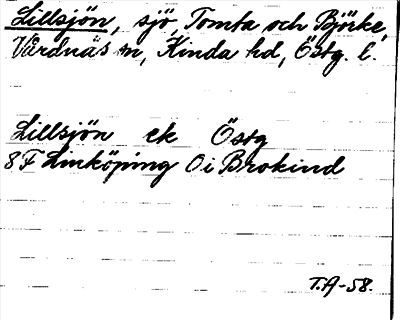 Lillsjön, sjö, Tomta och Björke,
Vårdnäs sn, Kinda hd, Östg. l.
Lillsjön ek Östg
8F Linköping 0 i Brokind
T.A-58.